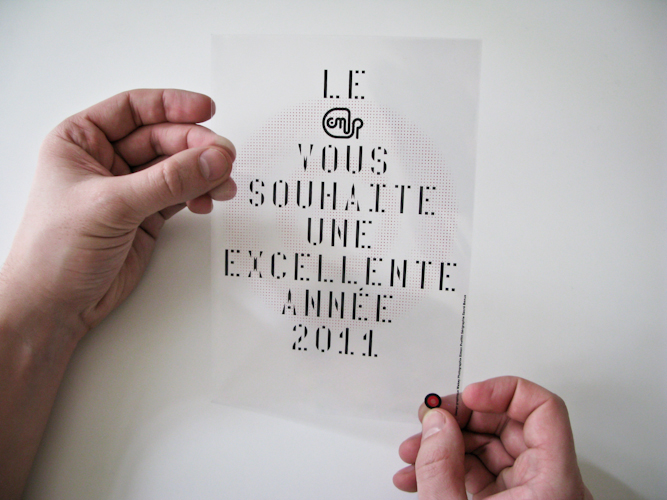 LE
cmp
VOUS
SOUHAITE
UNE
EXCELLENTE
ANNÉE
2011